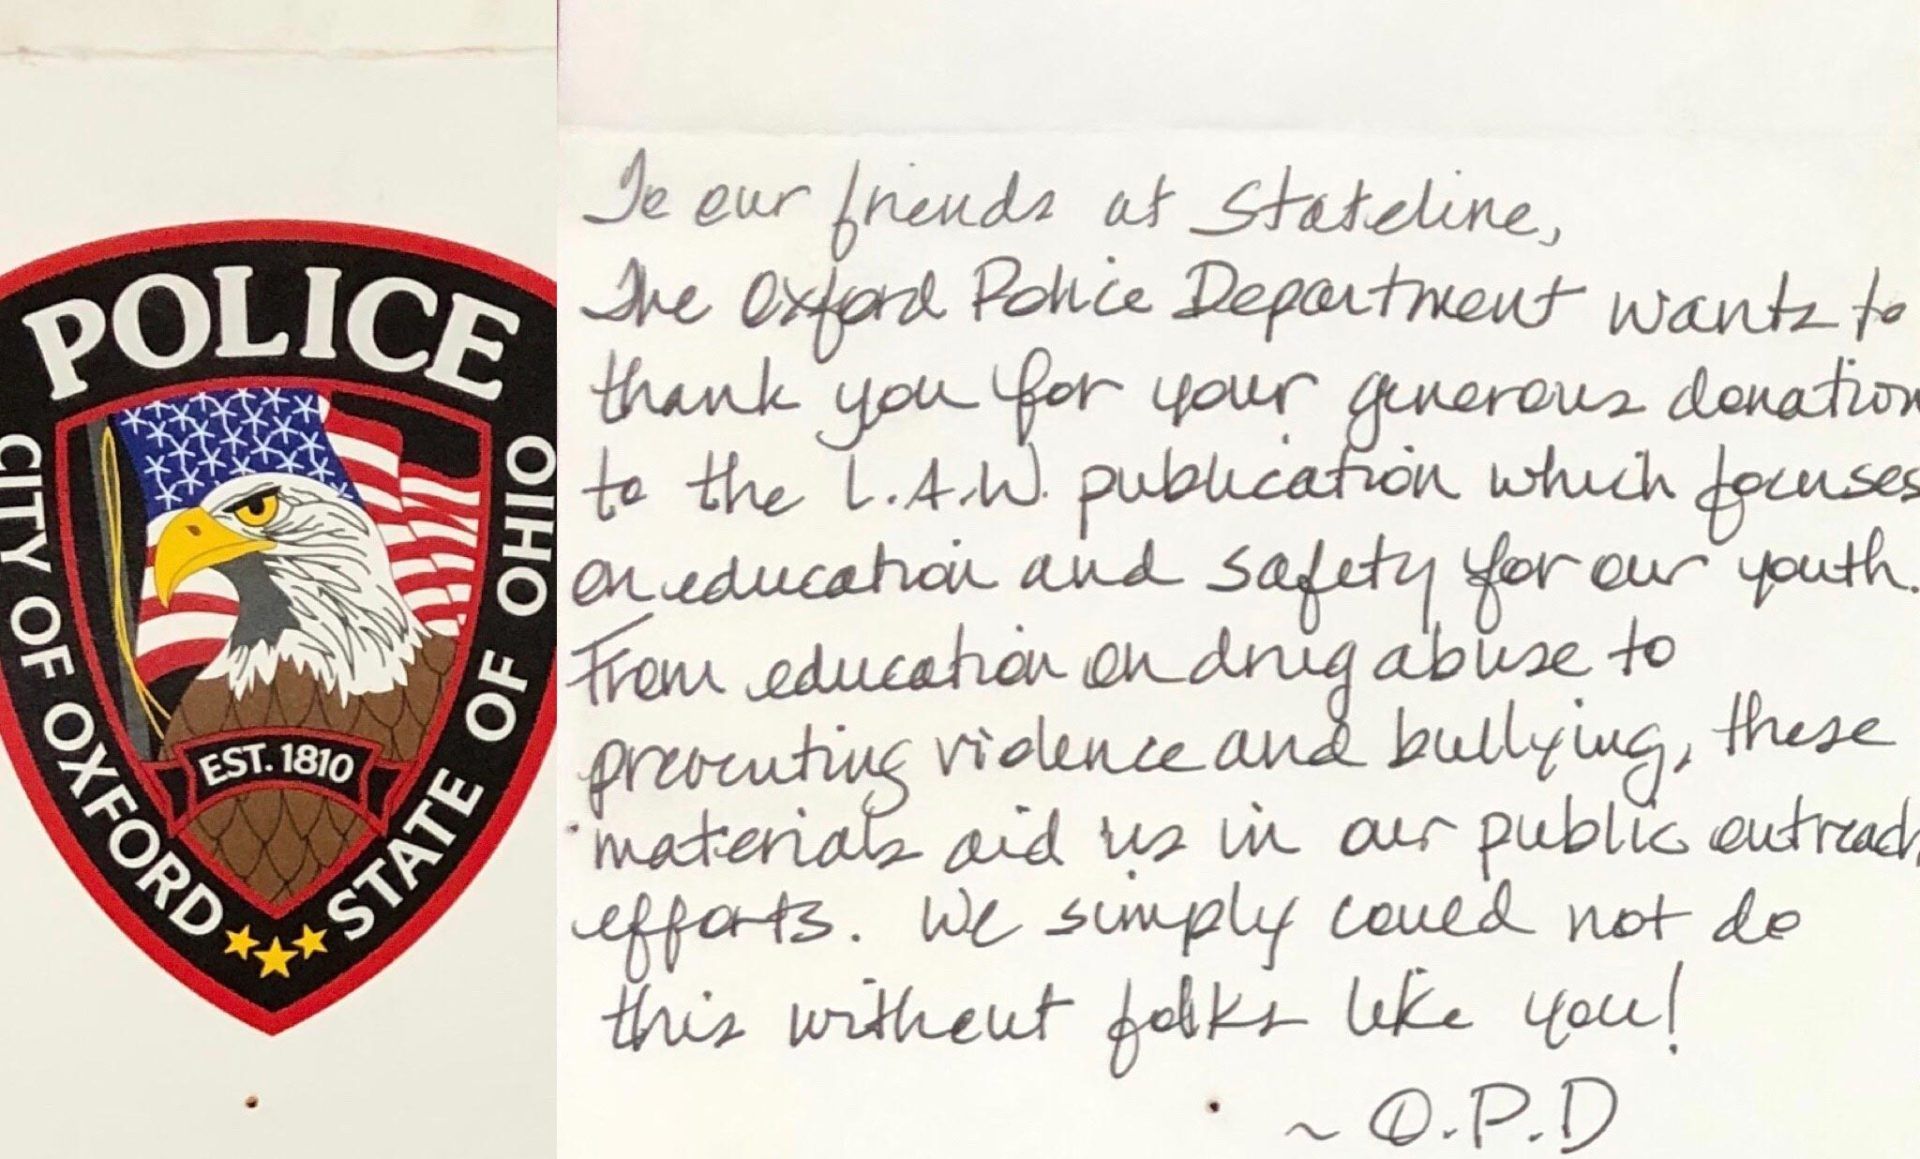 POLICE
CITY OF OXFORD
STATE OF OHIO
EST. 1810
To our friends at Stateline,
The Oxford Police Department wants to
thank you for your generous donation
to the L.A.W. publication which focuses
on education and safety for our youth.
From education on drug abuse to
preventing violence and bullying, these
materials aid us in our public outreach
efforts. We simply could not do
this without folks like you!
~ O.P.D